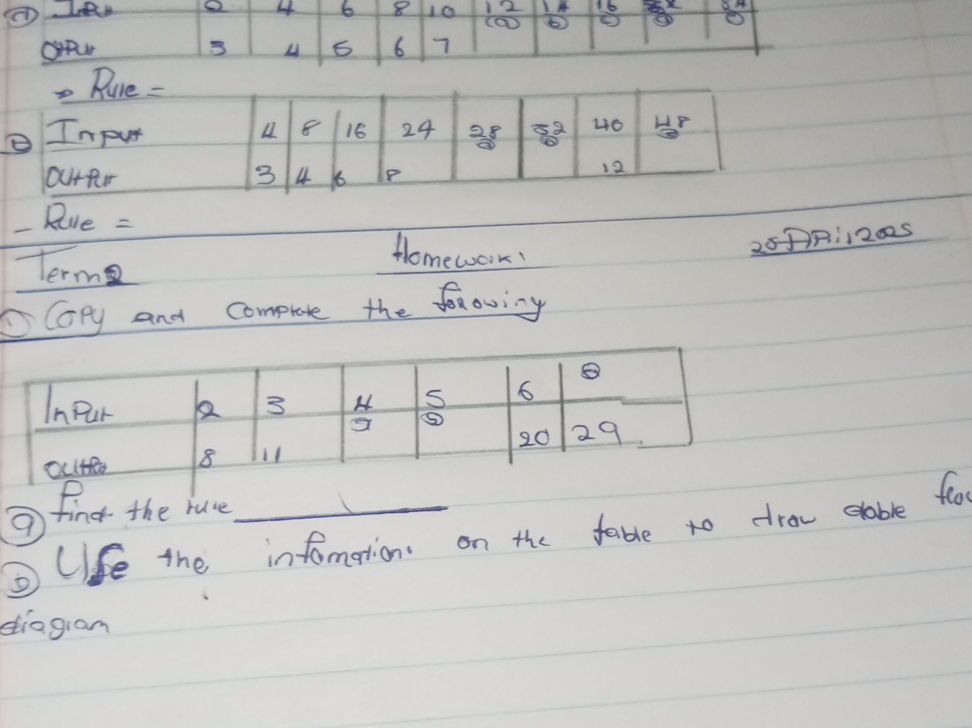 ① Input 2 4 6 8 10 12 14 16
Output 3 4 5 6 7
Rule =
② Input 4 8 16 24 28 32 40 48
Output 3 4 6 8 12
- Rule =
Term 2 Homework
① Copy and Complete the following
Input 2 3 4 5 6
Output 8 11 20 29
ⓐ find the rule
ⓑ Use the infomation on the table to draw
diagram